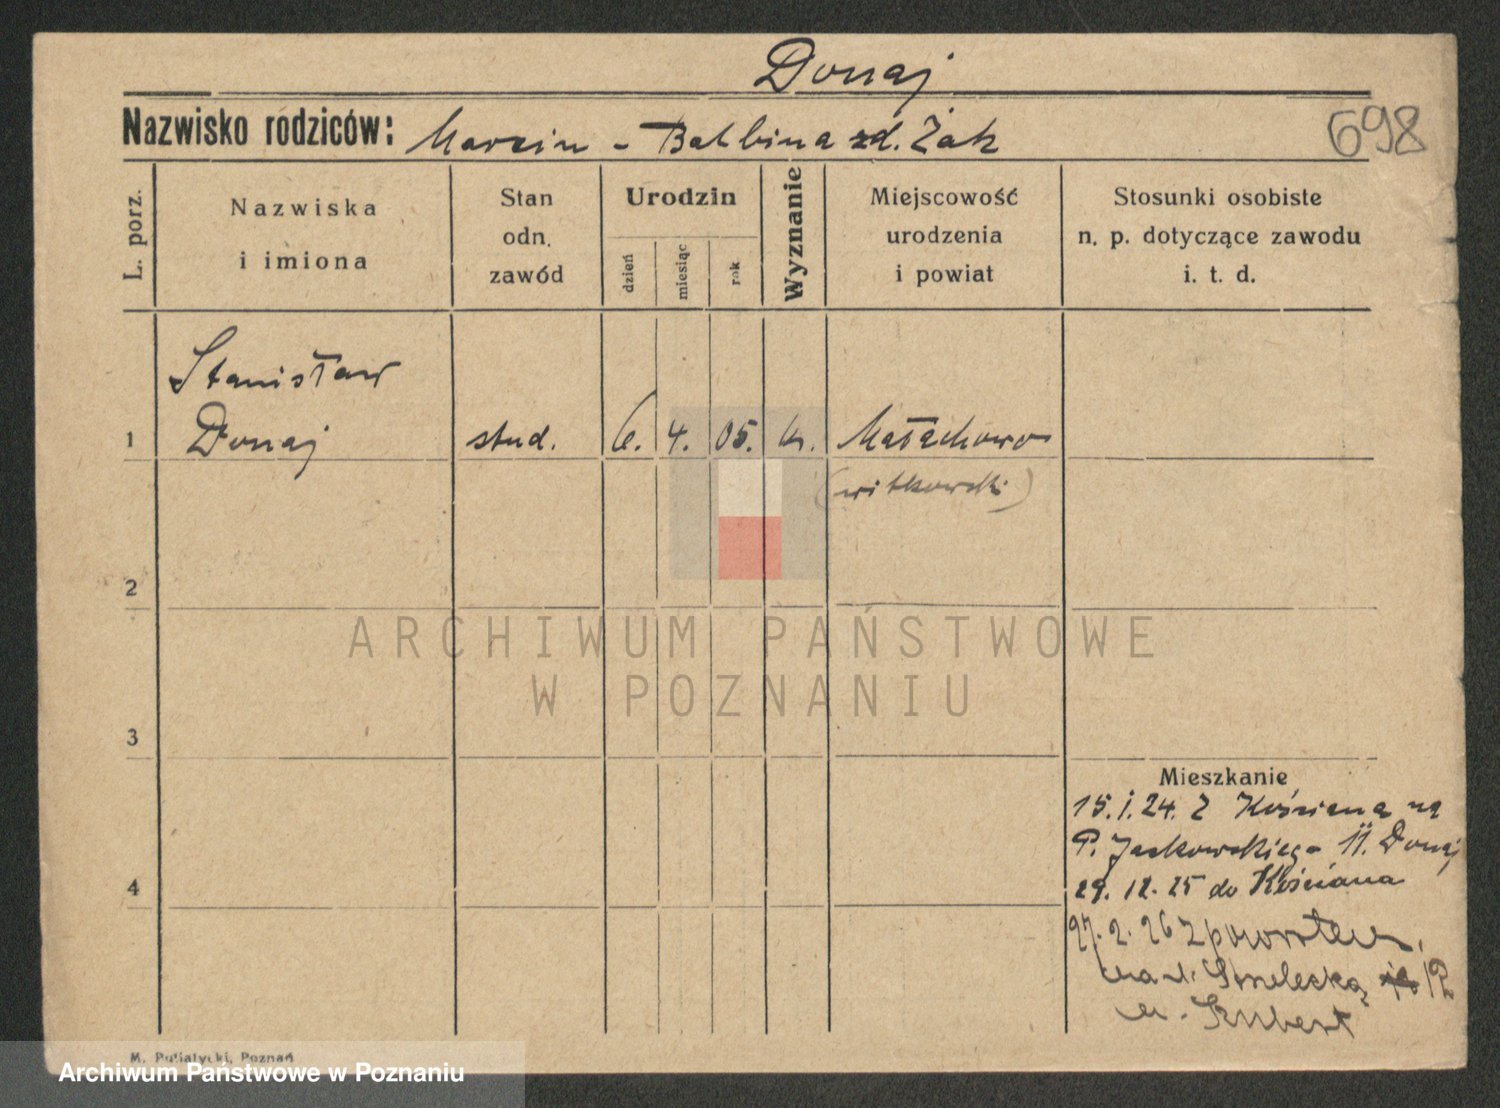 Donaj
Nazwisko rodziców: Marcin - Balbina zd. Żak
698
L. porz.
Nazwiska
i imiona
Stan
odn.
zawód
Urodzin
dzień
miesiąc
rok
Wyznanie
Miejscowość
urodzenia
i powiat
Stosunki osobiste
n. p. dotyczące zawodu
i. t. d.
Stanisław
1 Donaj stud. 6. 4. 05. k. Małachowo
(witkowski)
2
ARCHIWUM PAŃSTWOWE
W POZNANIU
3
Mieszkanie
15.1.24. Z Kościana na
P. Jackowskiego 11. Donaj
4
29.12.25 do Kościana
27.2.26 z powrotem,
na ul. Strzelecką
M. Putiatycki, Poznań
Archiwum Państwowe w Poznaniu